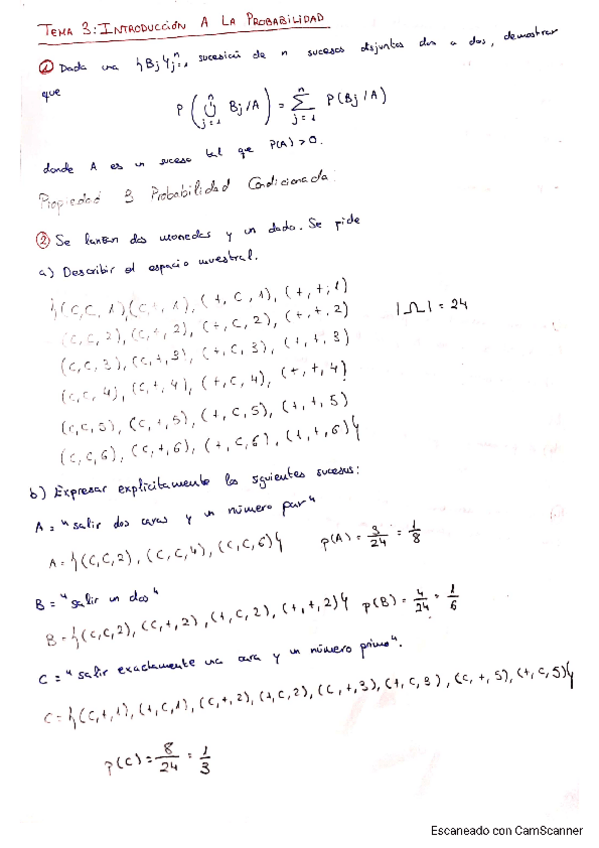 TEMA 3: INTRODUCCIÓN A LA PROBABILIDAD
① Dada una {Bj}ⁿj=1, sucesión de n sucesos disjuntos dos a dos, demostrar
que
P(⋃ⁿj=1 Bj/A) = ∑ⁿj=1 P(Bj/A)
donde A es un suceso tal que P(A) > 0.
Propiedad 3 Probabilidad Condicionada
② Se lanzan dos monedas y un dado. Se pide
a) Describir el espacio muestral.
{(C,C,1),(C,+,1), (+,C,1), (+,+,1)
(C,C,2), (C,+,2), (+,C,2), (+,+,2) |Ω| = 24
(C,C,3), (C,+,3), (+,C,3), (+,+,3)
(C,C,4), (C,+,4), (+,C,4), (+,+,4)
(C,C,5), (C,+,5), (+,C,5), (+,+,5)
(C,C,6), (C,+,6), (+,C,6), (+,+,6)}
b) Expresar explícitamente los siguientes sucesos:
A = "salir dos caras y un número par"
A = {(C,C,2), (C,C,4), (C,C,6)} p(A) = 3/24 = 1/8
B = "salir un dos"
B = {(C,C,2), (C,+,2), (+,C,2), (+,+,2)} p(B) = 4/24 = 1/6
C = "salir exactamente una cara y un número primo".
C = {(C,+,1), (+,C,1), (C,+,2), (+,C,2), (C,+,3), (+,C,3), (C,+,5), (+,C,5)}
p(C) = 8/24 = 1/3
Escaneado con CamScanner